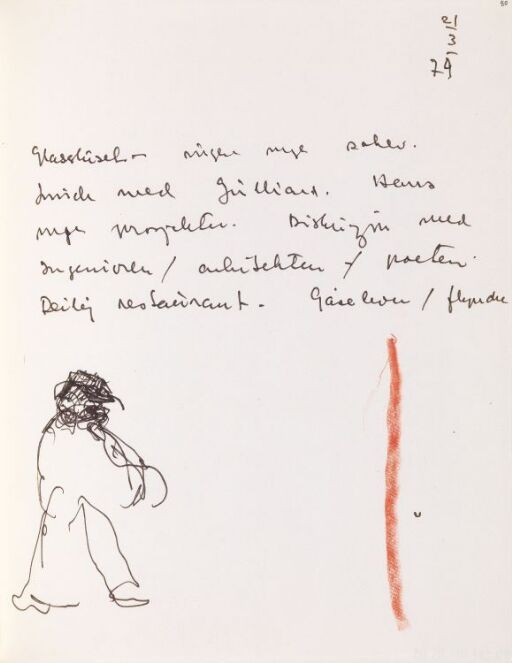 50
21
3
74
ingen nye saker.
Lunch med Hans
nye prosjekter. Diskusjon med
ingeniøren / arkitekten / poeten.
Deilig restaurant. Gåselever / flyndre